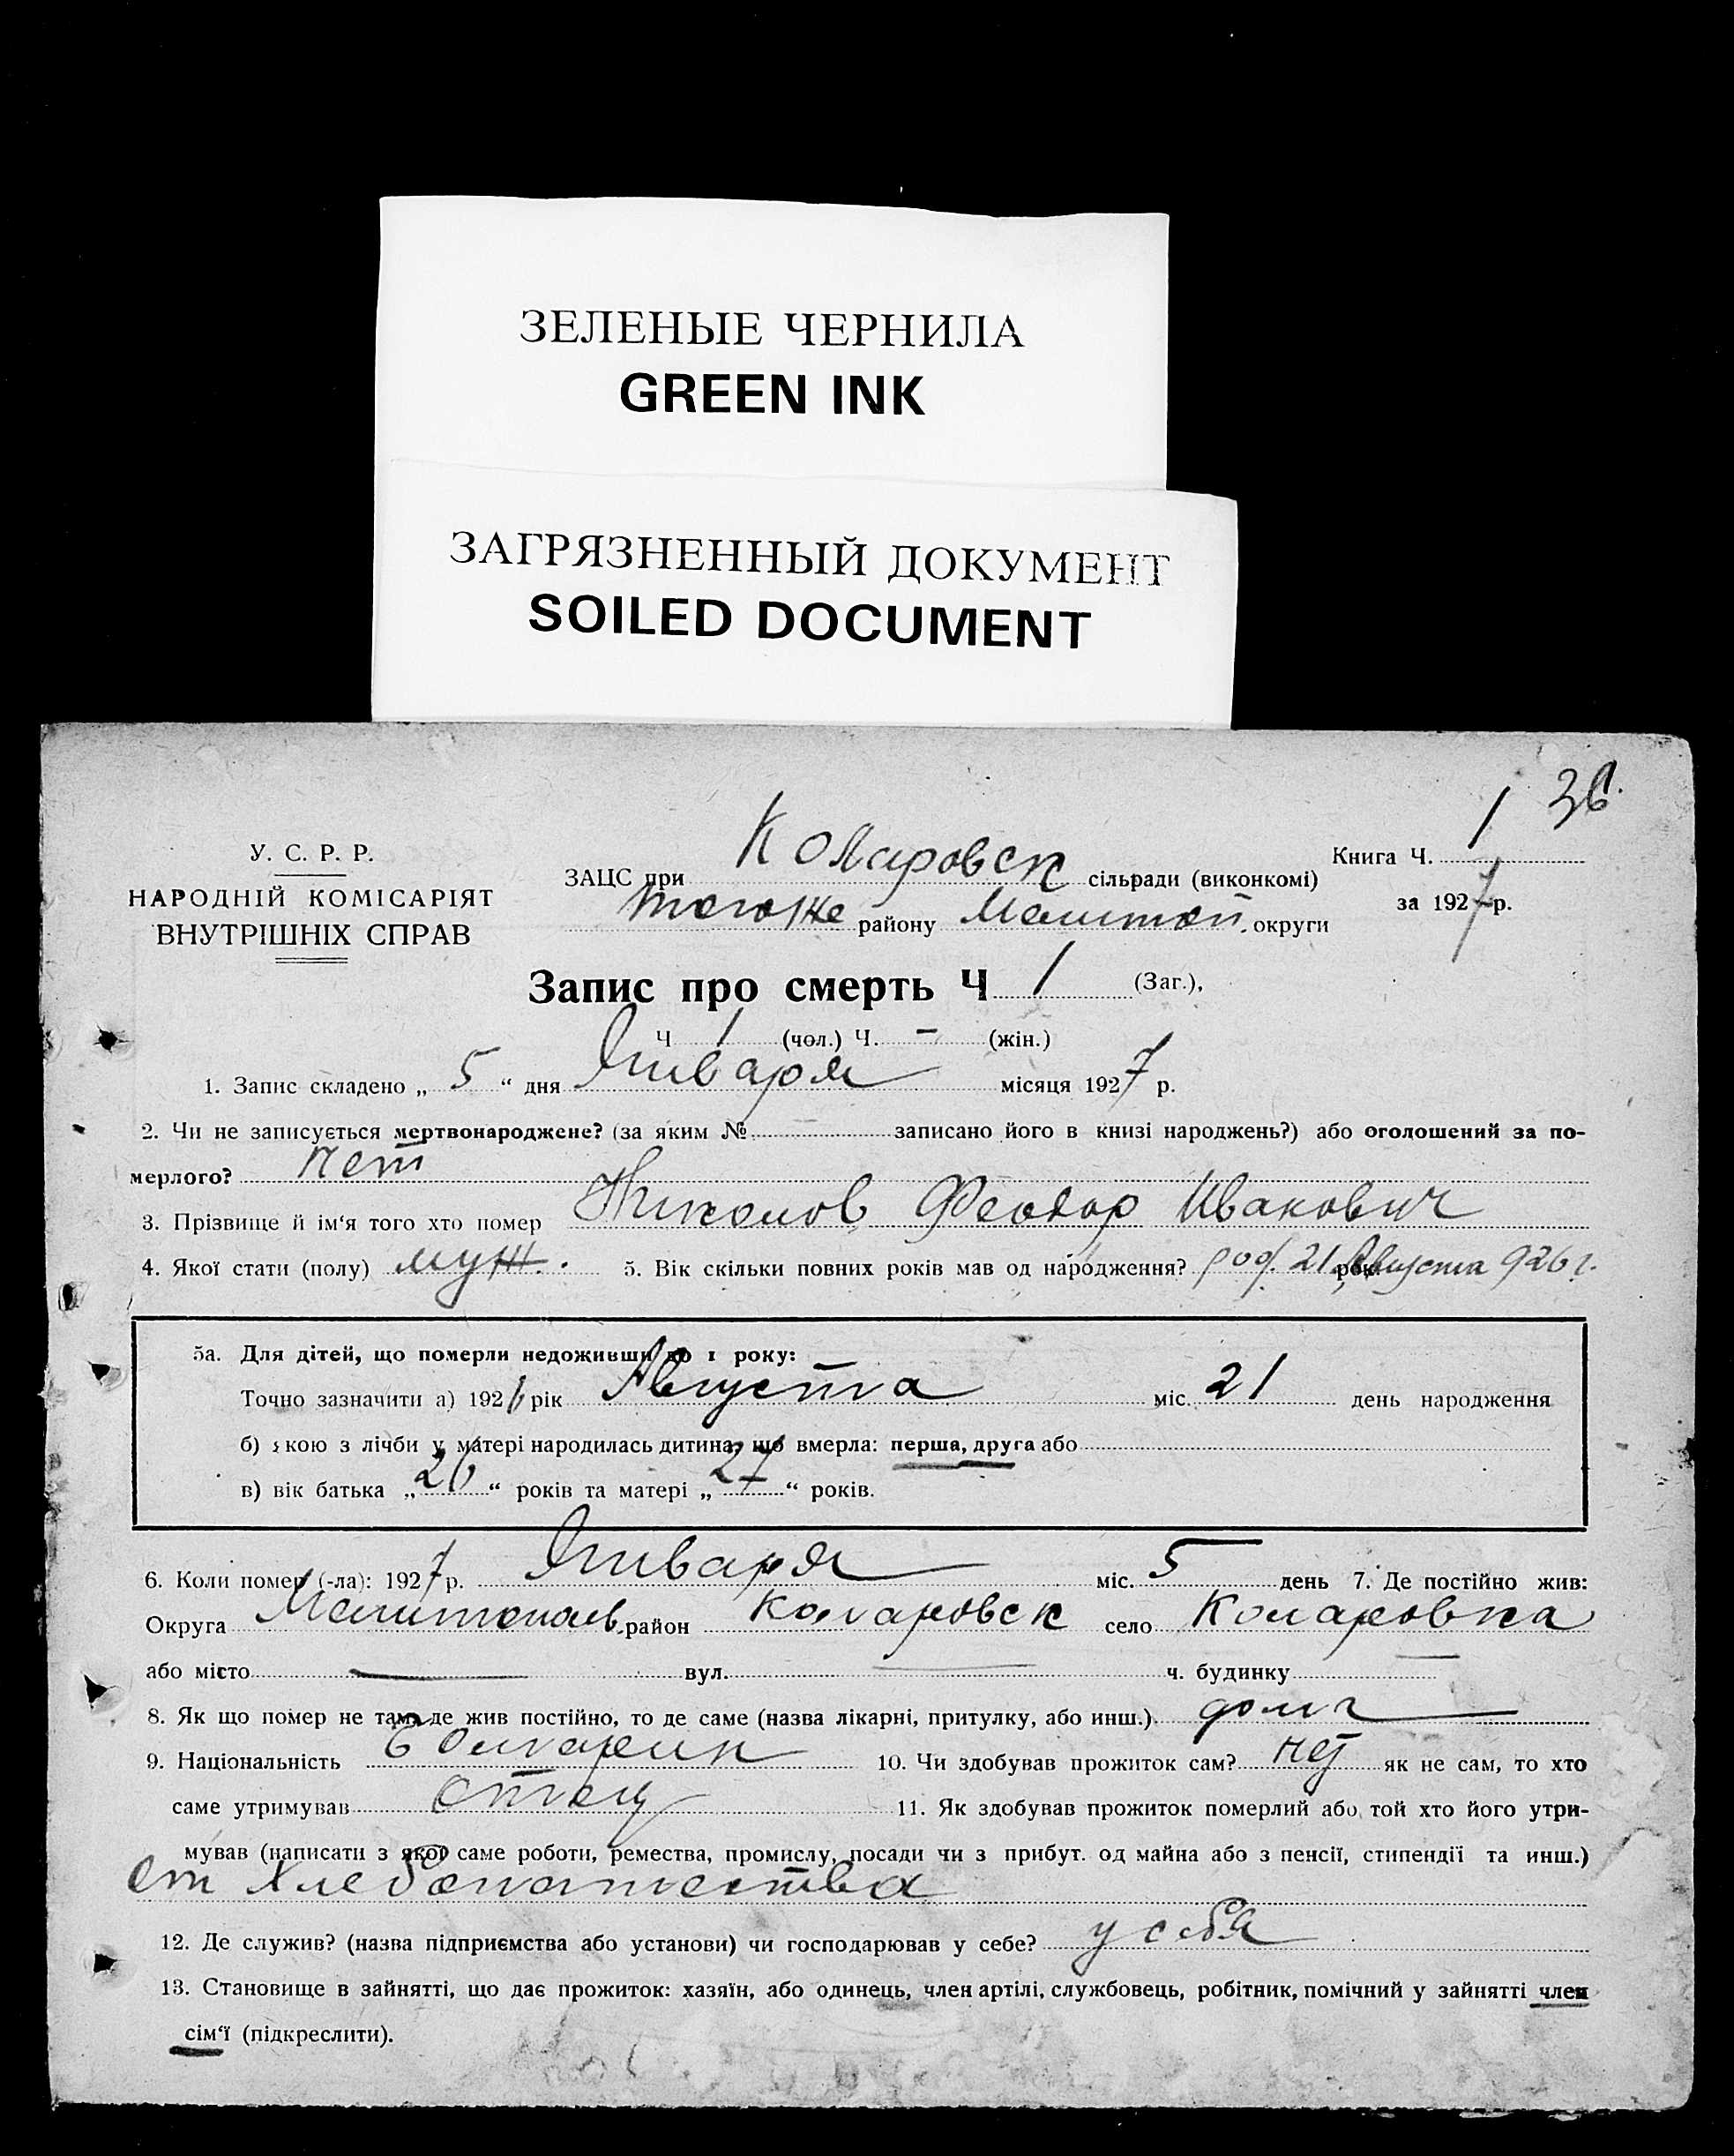 ЗЕЛЕНЫЕ ЧЕРНИЛА
GREEN INK
ЗАГРЯЗНЕННЫЙ ДОКУМЕНТ
SOILED DOCUMENT
У. С. Р. Р.
НАРОДНІЙ КОМІСАРІЯТ
ВНУТРІШНІХ СПРАВ
ЗАЦС при Коларовск сільради (виконкомі)
тогоже району Мелитоп. округи
Книга Ч. 1
за 1927 р.
Запис про смерть Ч 1 (Заг.),
Ч 1 (чол.) Ч. – (жін.)
1. Запис складено „ 5 “ дня Января місяця 1927 р.
2. Чи не записується мертвонароджене? (за яким № – записано його в книзі народжень?) або оголошений за по-
мерлого? нет
3. Прізвище й ім‘я того хто помер Николов Феодор Иванович
4. Якої стати (полу) муж. 5. Вік скільки повних років мав од народження? род. 21 Августа 926 г.
5а. Для дітей, що померли недоживши до 1 року:
Точно зазначити а) 1926 рік Августа міс. 21 день народження
б) якою з лічби у матері народилась дитина, що вмерла: перша, друга або
в) вік батька „ 26 “ років та матері „ 27 “ років.
6. Коли помер (-ла): 1927 р. Января міс. 5 день 7. Де постійно жив:
Округа Мелитопольв. район Коларовск село Коларовка
або місто — вул. — ч. будинку —
8. Як що помер не там, де жив постійно, то де саме (назва лікарні, притулку, або инш.). дома
9. Національність болгарин 10. Чи здобував прожиток сам? нет як не сам, то хто
саме утримував отец 11. Як здобував прожиток померлий або той хто його утри-
мував (написати з якої саме роботи, ремества, промислу, посади чи з прибут. од майна або з пенсії, стипендії та инш.)
от хлебопашества
12. Де служив? (назва підприємства або установи) чи господарював у себе? у себя
13. Становище в зайнятті, що дає прожиток: хазяїн, або одинець, член артілі, службовець, робітник, помічний у зайнятті член
сім‘ї (підкреслити).